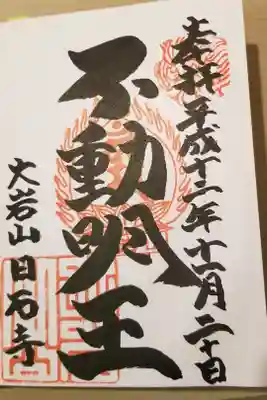 奉拝 平成十二年十一月二十日
不動明王
大岩山日石寺